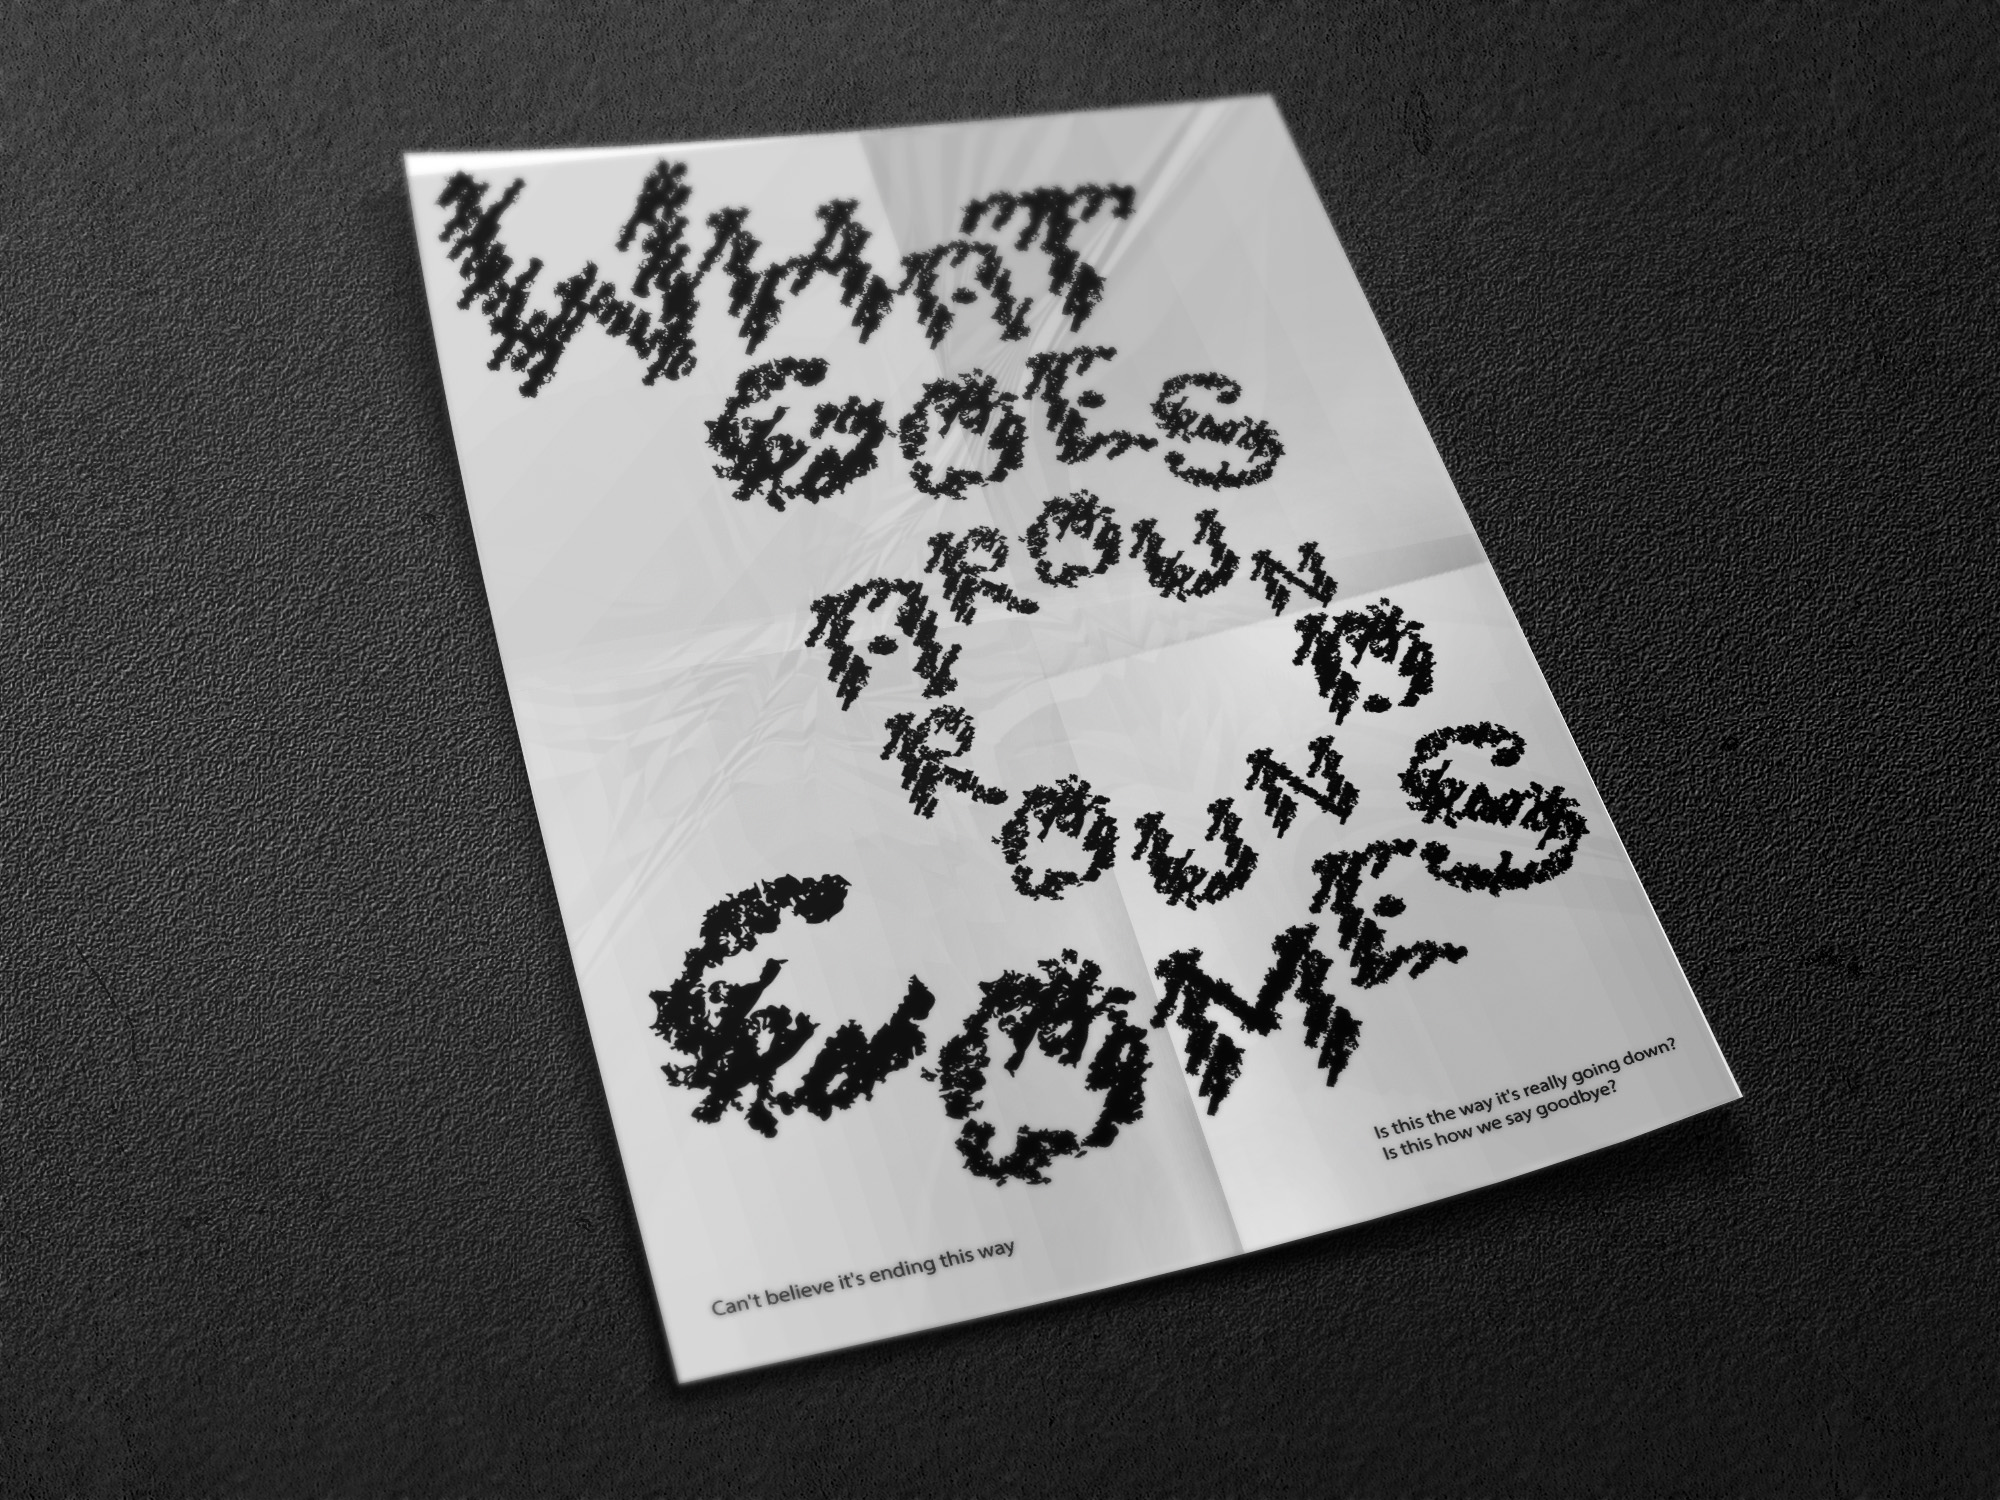 WHAT
GOES
AROUND
ROUN
COMES
Is this the way it's really going down?
Is this how we say goodbye?
Can't believe it's ending this way